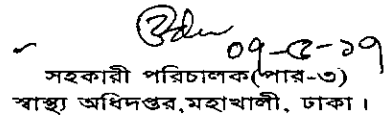 ০৭-৫-১৭
সহকারী পরিচালক(পার-৩)
স্বাস্থ্য অধিদপ্তর,মহাখালী, ঢাকা।